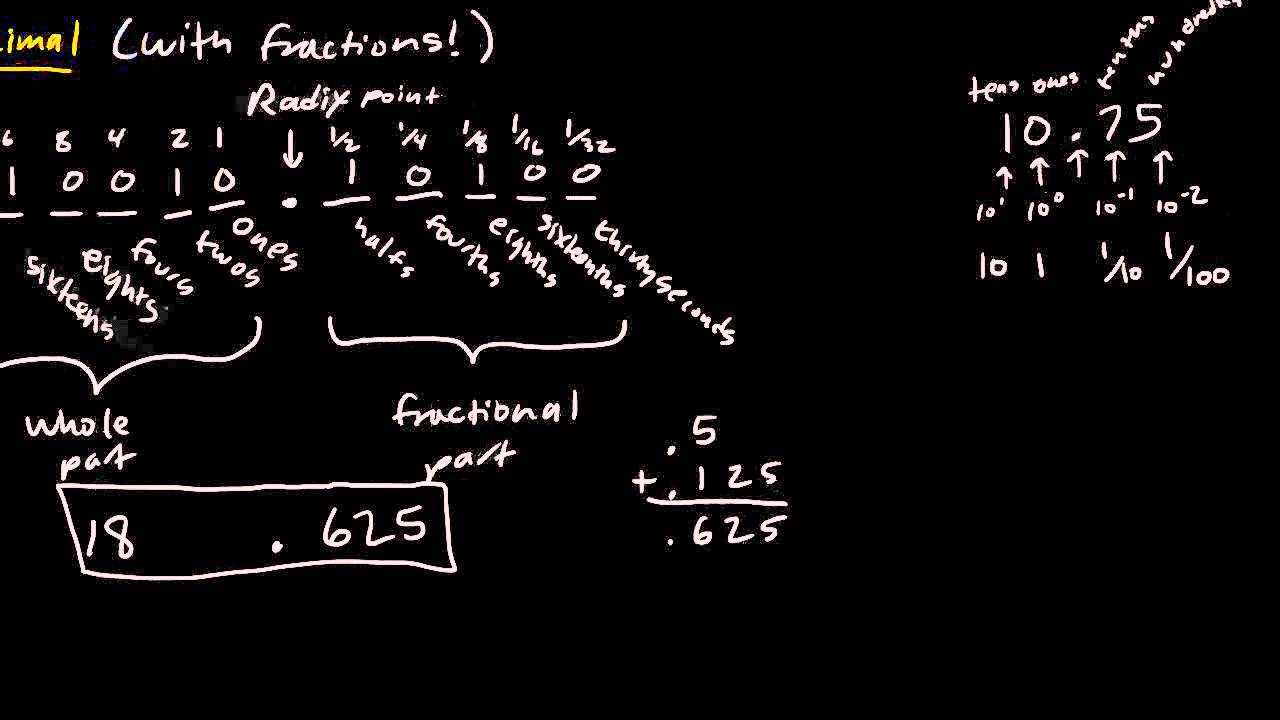 imal (with fractions!)
Radix point
6 8 4 2 1 1/2 1/4 1/8 1/16 1/32
1 0 0 1 0 . 1 0 1 0 0
sixteens eights fours twos ones halfs fourths eighths sixteenths thirtyseconds
whole part
fractional part
18 . 625
.5
+ .125
.625
tens ones tenths
10.75
10¹ 10⁰ 10⁻¹ 10⁻²
10 1 1/10 1/100